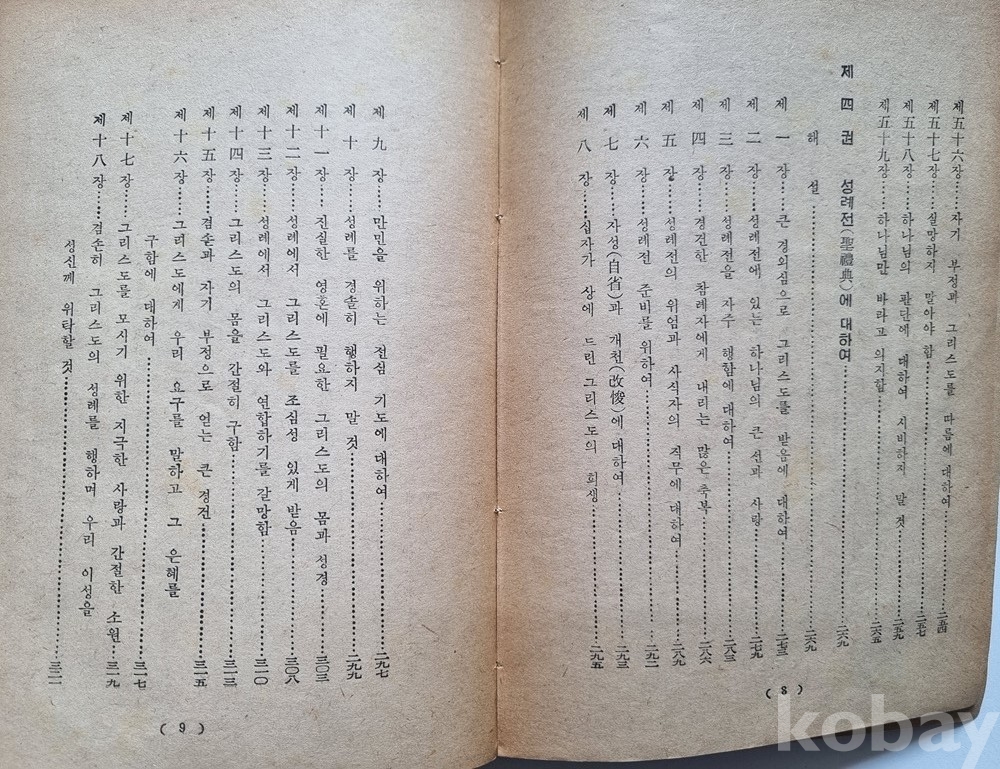 제五十六장……자기 부정과 그리스도를 따름에 대하여……二五四
제五十七장……실망하지 말아야 함……二五七
제五十八장……하나님의 판단에 대하여 시비하지 말 것……二五九
제五十九장……하나님만 바라고 의지함……二六五
제四권 성례전(聖禮典)에 대하여……二六九
해 설……二六九
제一장……큰 경외심으로 그리스도를 받음에 대하여……二七三
제二장……성례전에 있는 하나님의 큰 선과 사랑……二七九
제三장……성례전을 자주 행함에 대하여……二八三
제四장……경건한 참례자에게 내리는 많은 축복……二八六
제五장……성례전의 위엄과 사식자의 직무에 대하여……二八九
제六장……성례전 준비를 위하여……二九二
제七장……자성(自省)과 개천(改悛)에 대하여……二九三
제八장……십자가 상에 드린 그리스도의 희생……二九五
( 8 )
제九장……만민을 위하는 전심 기도에 대하여……二九七
제十장……성례를 경솔히 행하지 말 것……二九九
제十一장……진실한 영혼에 필요한 그리스도의 몸과 성경……三〇三
제十二장……성례에서 그리스도를 조심성 있게 받음……三〇八
제十三장……성례에서 그리스도와 연합하기를 갈망함……三一〇
제十四장……그리스도의 몸을 간절히 구함……三一三
제十五장……겸손과 자기 부정으로 얻는 큰 경전……三一五
제十六장……그리스도에게 우리 요구를 말하고 그 은혜를
구함에 대하여……三一七
제十七장……그리스도를 모시기 위한 지극한 사랑과 간절한 소원……三一九
제十八장……겸손히 그리스도의 성례를 행하며 우리 이성을
성신께 위탁할 것……三二一
( 9 )
kobay